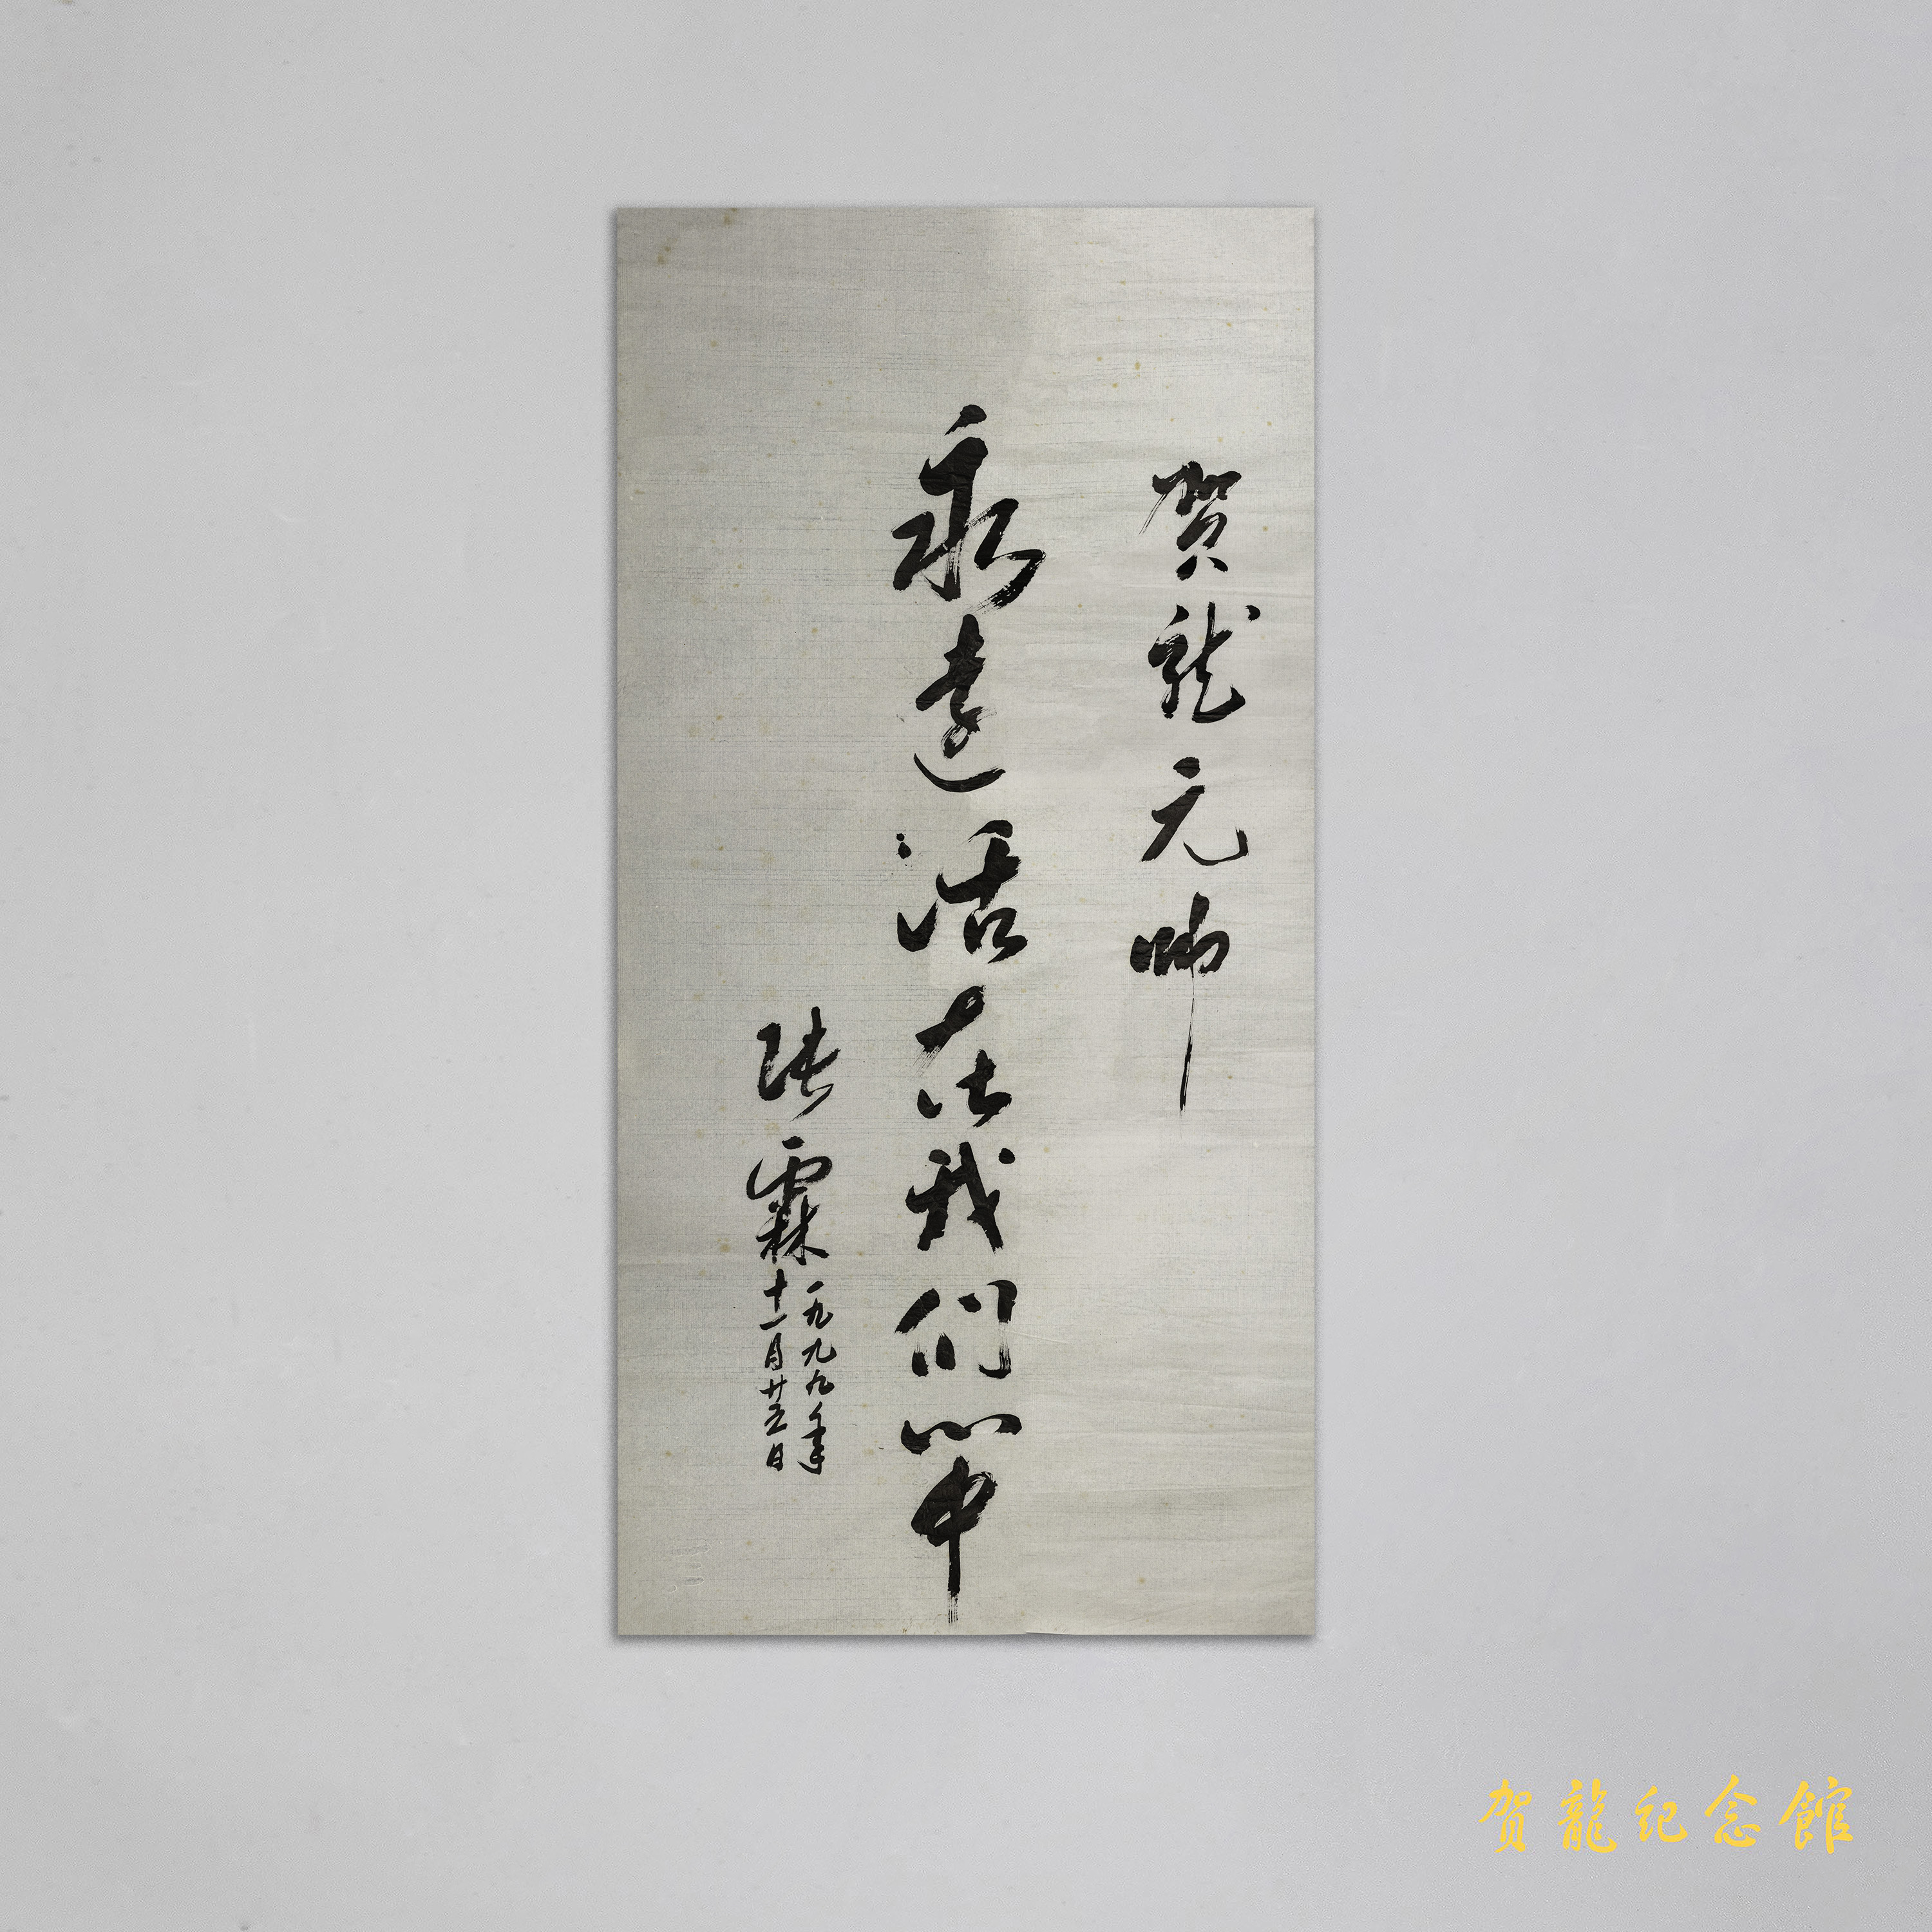 贺龙元帅
永远活在我们心中
张霖
一九九九年
十一月廿五日
贺龍纪念館